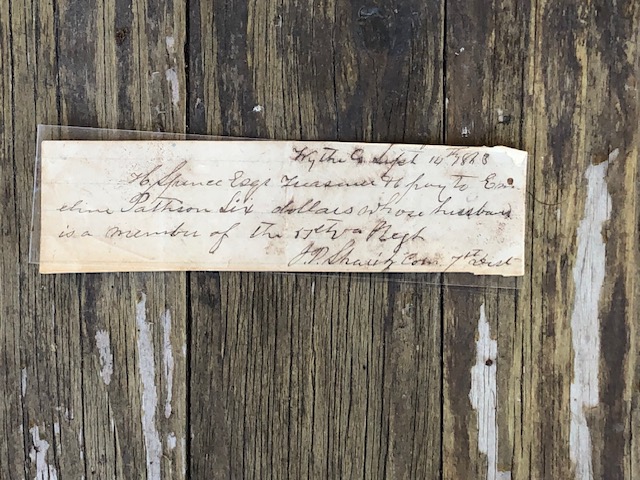 Wythe Co Sept 10th 1863
H Spence Esqr Treasurer &c pay to Em
eline Pattison Six dollars whose husband
is a member of the Va Regt
Com. 7th Dist